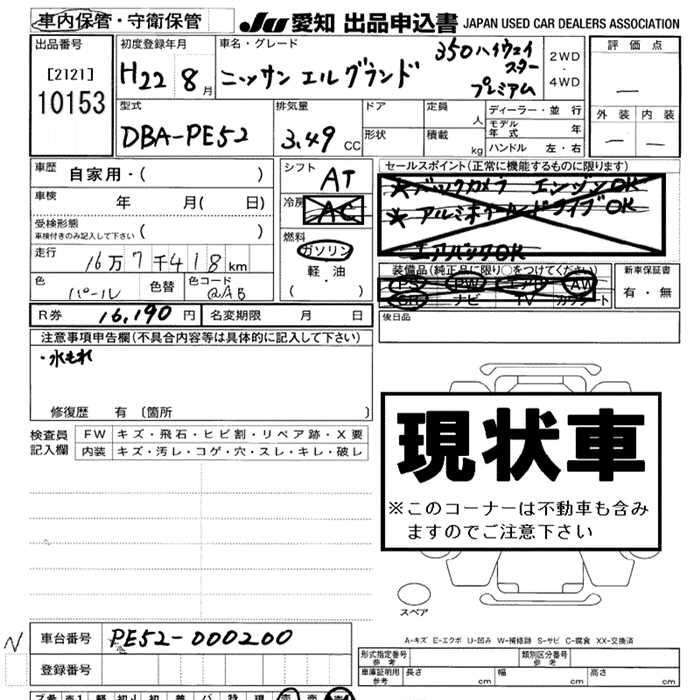 車内保管・守衛保管 JU 愛知 出品申込書 JAPAN USED CAR DEALERS ASSOCIATION
出品番号 [2121] 10153
初度登録年月 H22 8月
車名・グレード ニッサン エルグランド 350 ハイウェイ スター プレミアム
2WD ・ 4WD
評価点 —
外装 — 内装 —
型式 DBA-PE52
排気量 3.49 CC
ドア 形状
定員 人 積載 kg
ディーラー・並行
モデル年式 年
ハンドル 左・右
車歴 自家用・( )
車検 年 月( 日)
受検形態 車検付きのみ記入して下さい ( )
走行 16万7千418km
色 パール 色替 色コード QAB
シフト AT
冷房 AC
燃料 ガソリン 軽・油 ・ ( )
セールスポイント(正常に機能するものに限ります)
*バックカメラ エンジンOK
*アルミホイール ドライブOK
エアバックOK
装備品(純正品に限り○をつけてください)
PS PW エアB AW
SR ナビ TV カワシート
新車保証書 有・無
R券 16,190円 名変期限 月 日
後日品
注意事項申告欄(不具合内容等は具体的に記入して下さい)
・水もれ
修復歴 有 〔箇所 〕
検査員記入欄
FW キズ・飛石・ヒビ割・リペア跡・X要
内装 キズ・汚レ・コゲ・穴・スレ・キレ・破レ
現状車
※このコーナーは不動車も含み
ますのでご注意下さい
スペア
N 車台番号 PE52-000200
登録番号
A-キズ E-エクボ U-凹み W-補修跡 S-サビ C-腐食 XX-交換済
形式指定番号 参考 類別区分番号 参考
車庫証明用 参考 長さ cm 幅 cm 高さ cm